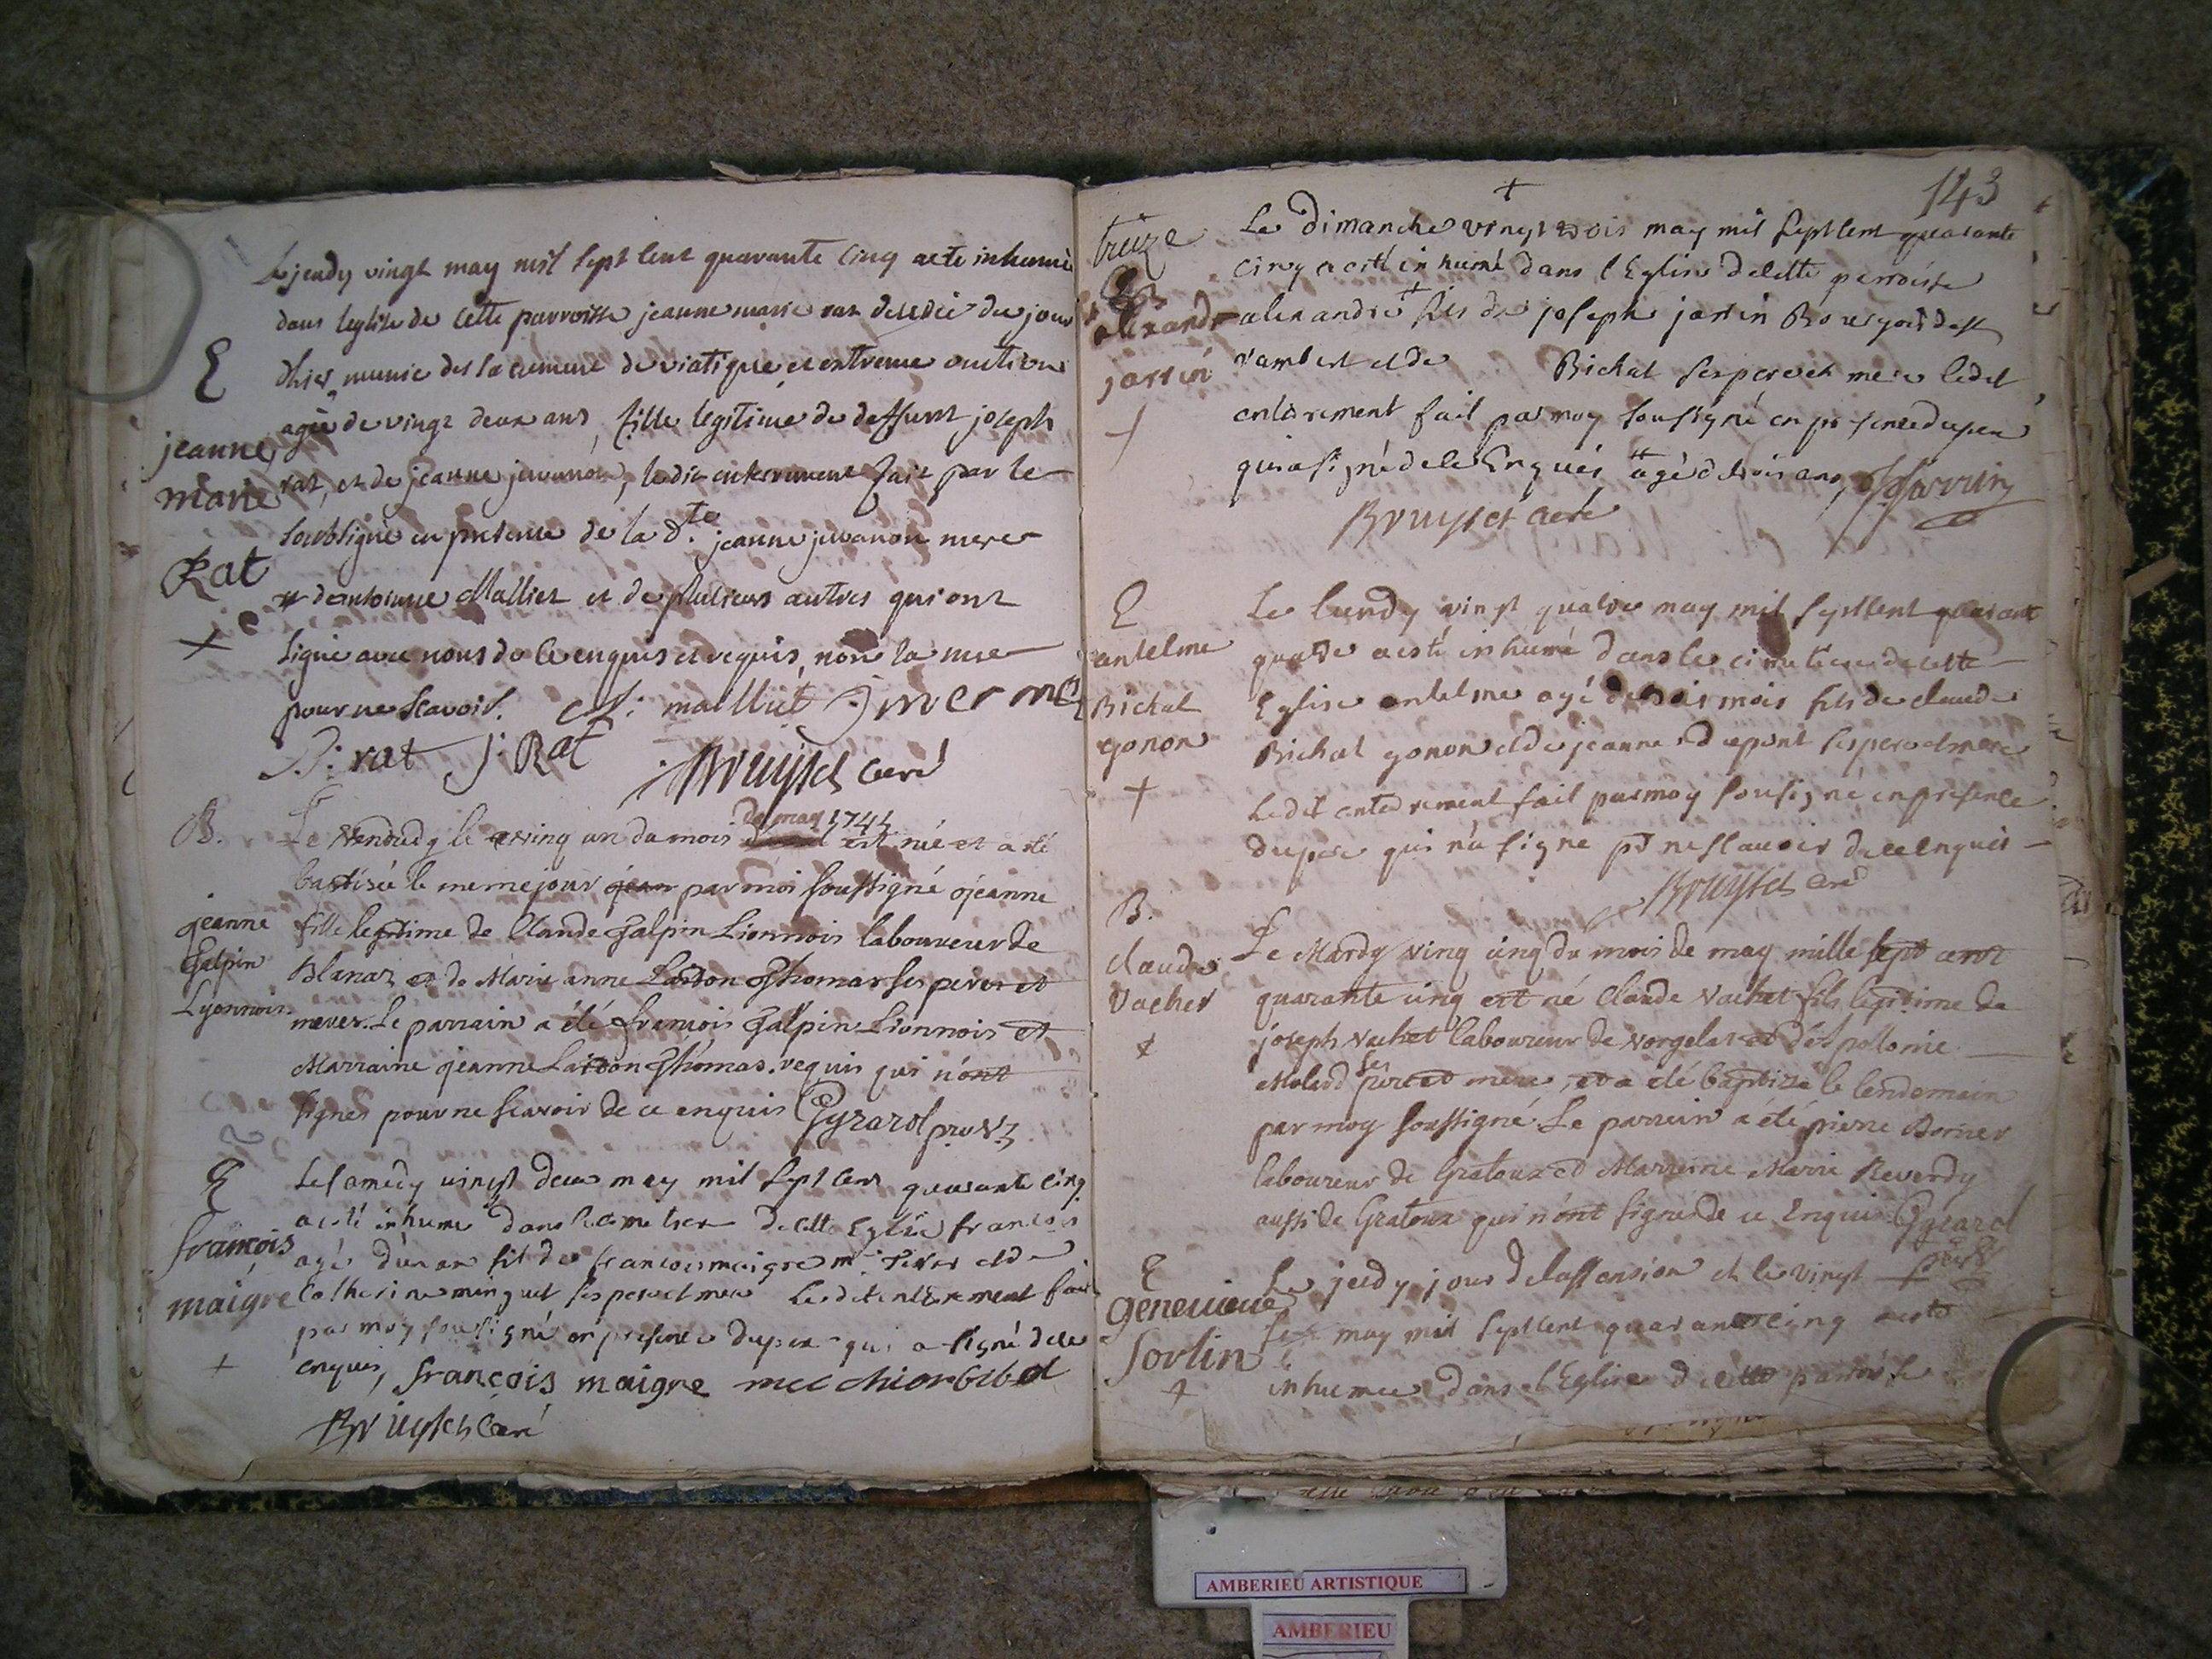 Le jeudy vingt may mil sept cent quarante cinq a eté inhumée
dans leglise de cette parroisse jeanne marie rat decedée du jour
dhier munie des sacrements de viatique et extreme onction
E
agée de vingt deux ans, fille legitime de deffunt joseph
jeanne
rat, et de jeanne juvanon, ledit enterrement fait par le
marie
soubsigné en presence de la d.te jeanne juvanon mere
Rat
d'antoine Malliet et de plusieurs autres qui ont
+
signé avec nous de ce enquis et requis, non la mere
pour ne scavoir. malliet
rat J: Rat Bruyset curé
B.
de may 1744
Le Vendredy le vinq un du mois est née et a été
baptisée le meme jour par moi soussigné jeanne
jeanne
fille legitime de Claude Galpin Lionnois laboureur de
Galpin
Blanaz et de Marie anne Lardon Thomas ses peres et
Lyonnois
meres. Le parrain a été francois Galpin Lionnois et
Marraine jeanne Lardon Thomas. requis qui n'ont
signés pour ne scavoir de ce enquis Gyrard
E
Le samedy vingt deux may mil sept cent quarante cinq
a esté inhumé dans le cimetiere de cette Eglise francois
francois
agé d'un an fils de francois maigre et de
maigre
Catherine minguet ses pere et mere Ledit enterement fait
par moy sousigné en presence du pere qui a signé de ce
+
enquis, francois maigre melchior
Bruyset Curé
143
+
treize
Le dimanche vingt trois may mil sept cent quarante
cinq a esté inhumé dans l'Eglise de cette parroisse
alexandre
alexandre fils de joseph jarrin Bourgois de st
jarrin
rambert et de Bichat ses pere et mere ledit
+
enterement fait par moy sousigné en presence du pere
qui a signé de ce Enquis, agé de trois ans, Jarrin
Bruyset Curé
E
Le lundy vingt quatre may mil sept cent quarante
antelme
quatre a esté inhumé dans le cimetiere de cette
Bichat
Eglise antelme agé de trois mois fils de claude
gonon
Bichat gonon et de jeanne dupont ses pere et mere
+
Ledit enterement fait par moy sousigné en presence
du pere qui n'a signé pr ne scavoir de ce enquis
Bruyset Curé
B.
Le Mardy vinq cinq du mois de may mille sept cent
claude
vacher
quarante cinq est né Claude Vachet fils legitime de
joseph Vachet laboureur de Vorgelas et d'Apollonie
+
Molard ses pere et mere, et a été baptizé le lendemain
par moy soussigné. Le parrein a été pierre Borner
laboureur de Gratoux et Marreine Marie Reverdy
aussi de Gratoux qui n'ont signés de ce Enquis Gyrard
E
Le jeudy jour de lassension et le vingt
genevieve
sept may mil sept cent quarante cinq a esté
Sorlin
inhumee dans l'Eglise de cette parroisse
+
AMBERIEU ARTISTIQUE
AMBERIEU